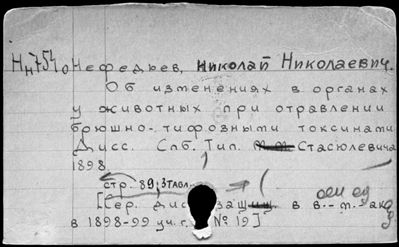 Нн754о Нефедьев, Николай Николаевич.
Об изменениях в органах
у животных при отравлении
брюшно-тифозными токсинами
Дисс. Спб. Тип. Стасюлевича
1898
стр. 89; 3 табл.
[Сер. дисс. защ. в в.-м. акад
в 1898-99 уч. г. № 19]